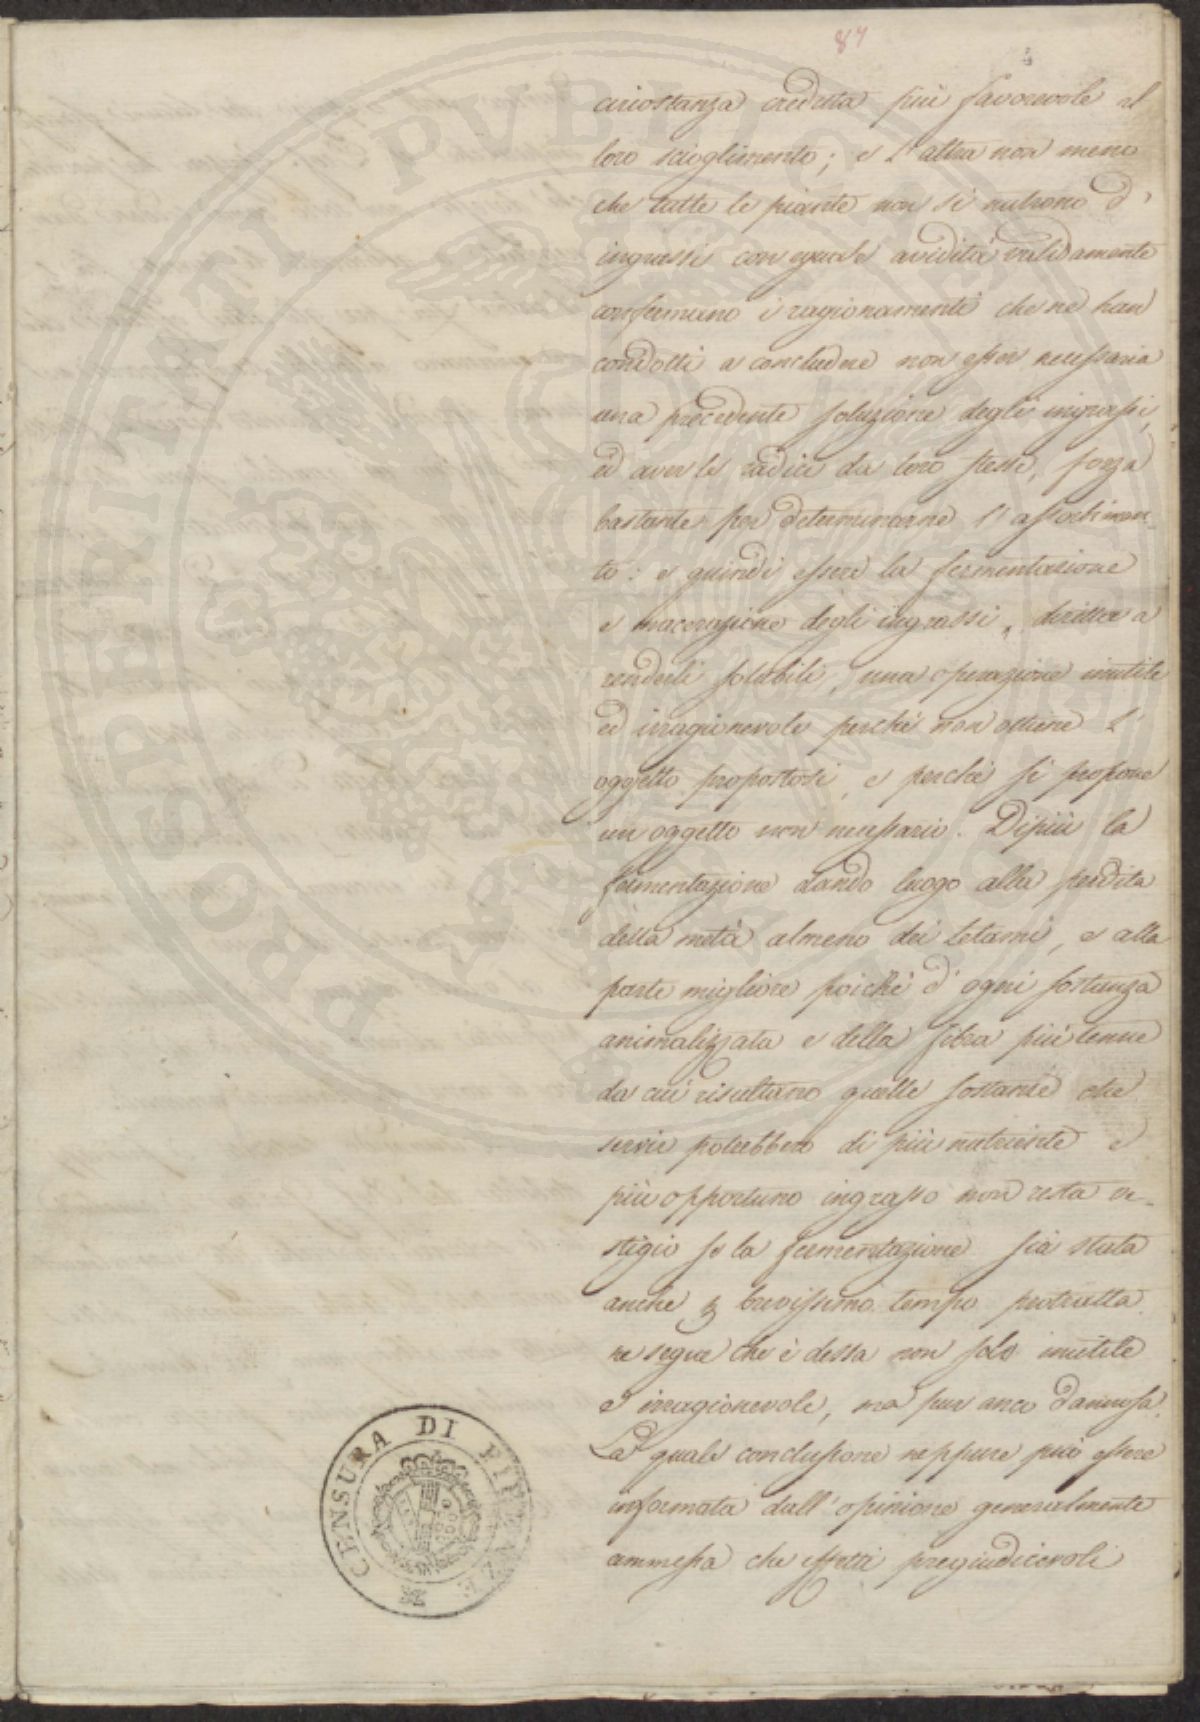 87
4
circostanza creduta più favorevole al
loro scioglimento; e l'altra non meno
che tutte le piante non si nutrono d'
ingrassi con eguale avidità validamente
confermano i ragionamenti che ne han
condotti a concludere non esser necessaria
una precedente soluzione degli ingrassi,
ed aver le radici da loro stesse, forza
bastante per determinarne l'assorbimen
to: e quindi essere la fermentazione
e macerazione degli ingrassi, diretta a
renderli solubili, una operazione inutile
ed irragionevole perché non ottiene l'
oggetto propostosi, e perché si propone
un oggetto non necessario. Dipiù la
fermentazione dando luogo alla perdita
della metà almeno dei letami, e alla
parte migliore poiché d'ogni sostanza
animalizzata e della fibra più tenue
da cui risultano quelle sostanze che
servir potrebbero di più nutriente e
più opportuno ingrasso non resta ve-
stigio se la fermentazione sia stata
anche p brevissimo tempo protratta
ne segue che è dessa non solo inutile
ed irragionevole, ma pur anco dannosa.
La quale conclusione neppure può essere
infirmata dall'opinione generalmente
ammessa che effetti pregiudicevoli
CENSURA DI FIRENZE
PROSPERITATI PVBLICAE